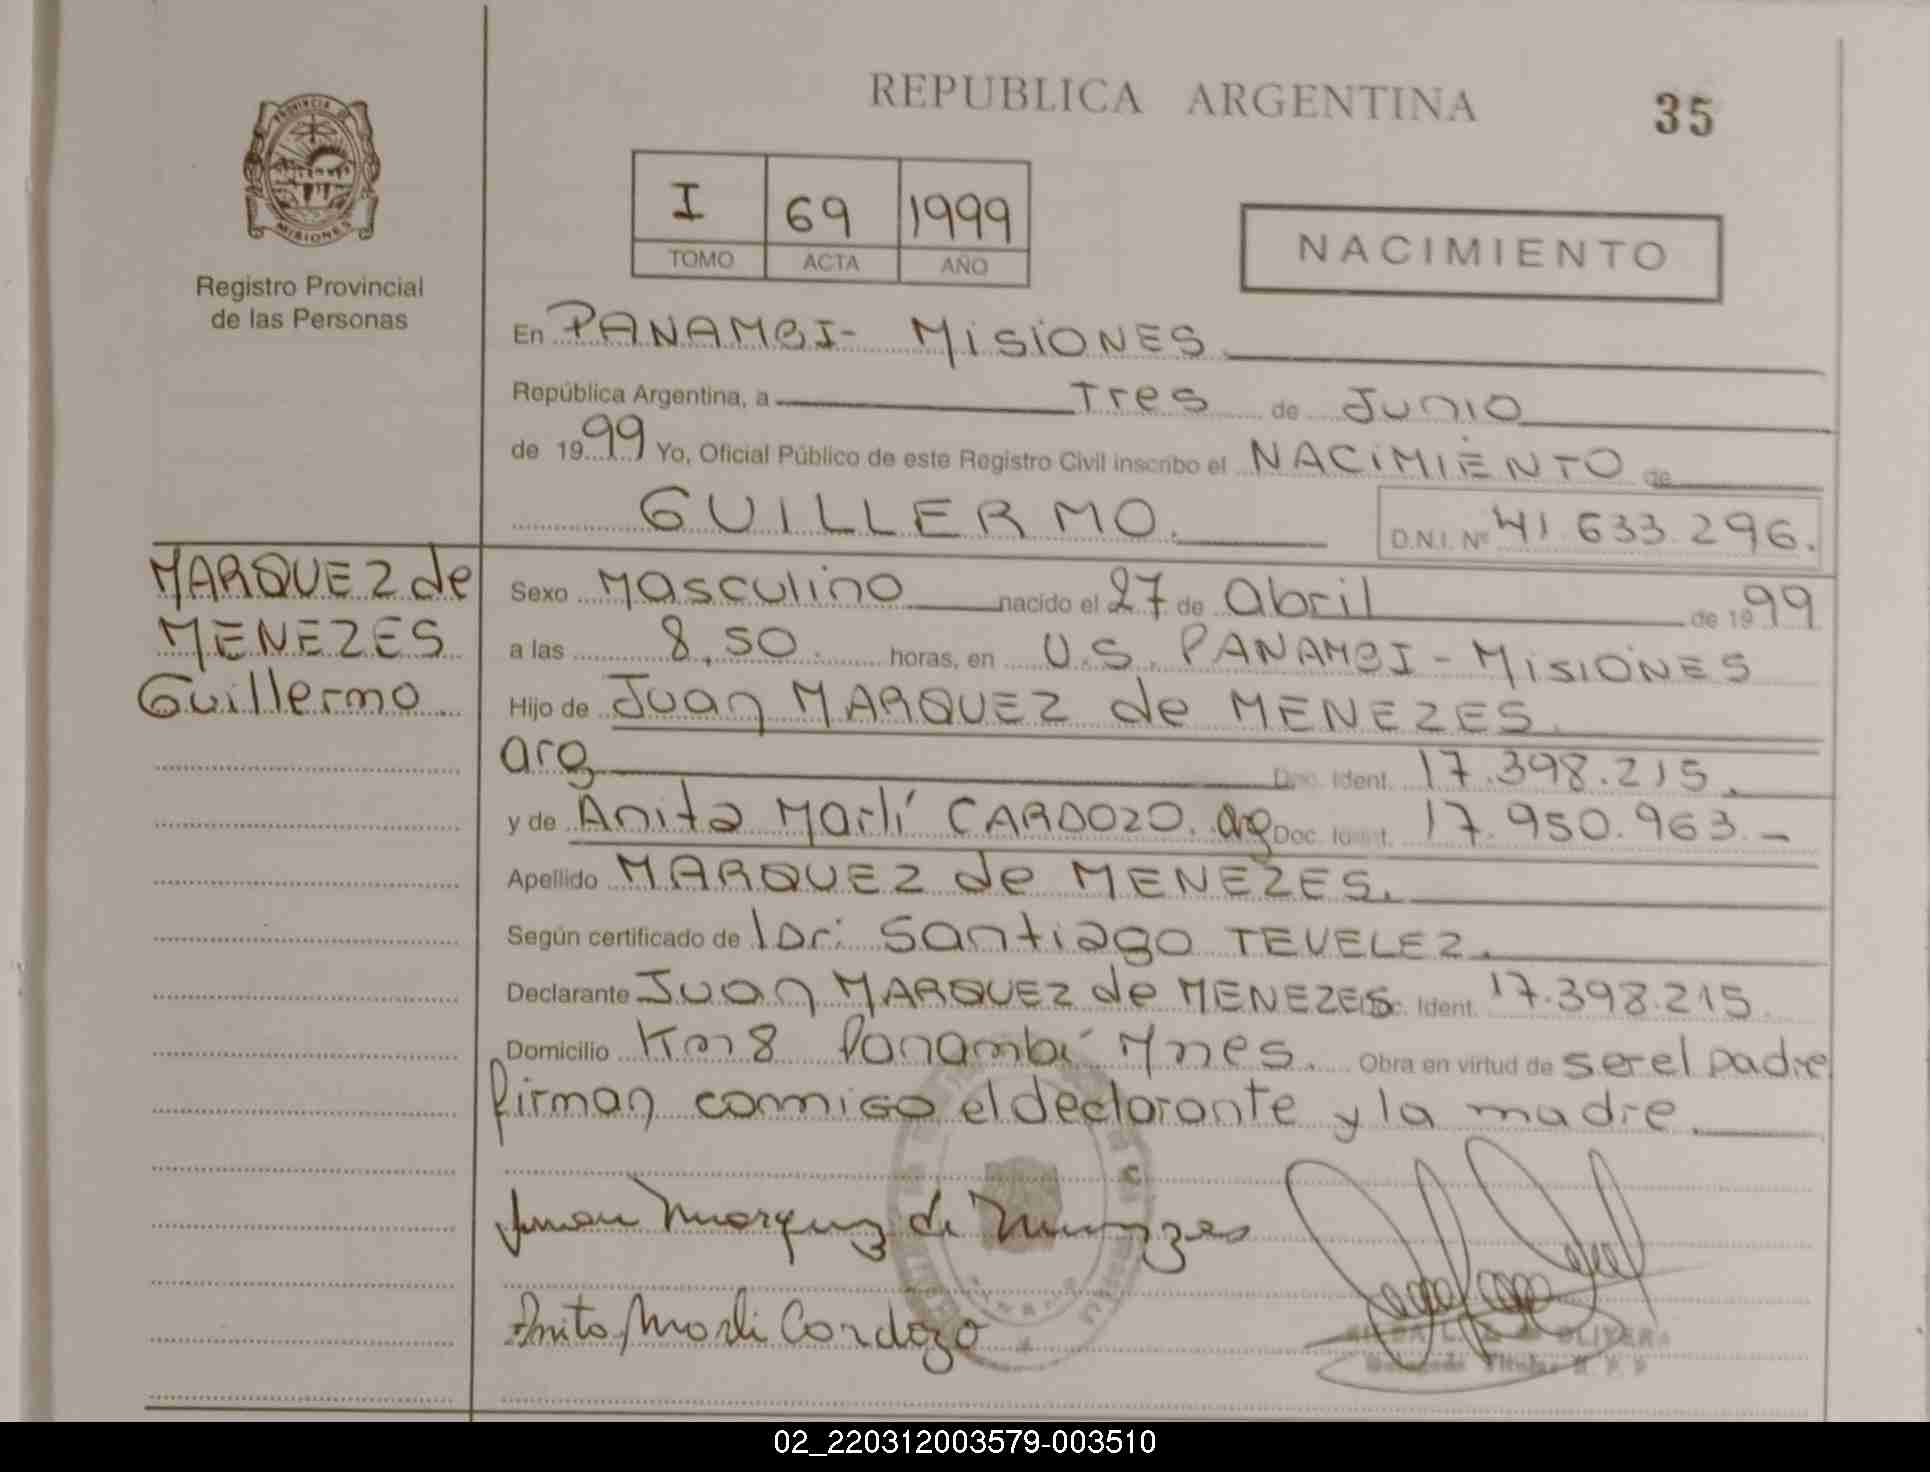 REPUBLICA ARGENTINA
35
PROVINCIA DE
MISIONES
Registro Provincial
de las Personas
I 69 1999
TOMO ACTA AÑO
NACIMIENTO
En PANAMBI- MISIONES
República Argentina, a Tres de Junio
de 1999 Yo, Oficial Público de este Registro Civil inscribo el NACIMIENTO de
GUILLERMO. D.N.I. Nº 41.633.296.
MARQUEZ de
MENEZES
Guillermo
Sexo Masculino nacido el 27 de abril de 1999
a las 8,50. horas, en U.S. PANAMBI - MISIONES
Hijo de Juan MARQUEZ de MENEZES.
arg Doc. Ident. 17.398.215.
y de Anita Marlí CARDOZO. arg Doc. Ident. 17.950.963.-
Apellido MARQUEZ de MENEZES.
Según certificado de Santiago TEVELEZ.
Declarante Juan MARQUEZ de MENEZES Doc. Ident. 17.398.215
Domicilio Km 8 Panambí Mnes. Obra en virtud de ser el padre
firman conmigo el declarante y la madre
Juan Marquez de Menezes
Anita Marli Cardozo
OLIVERA
02_220312003579-003510